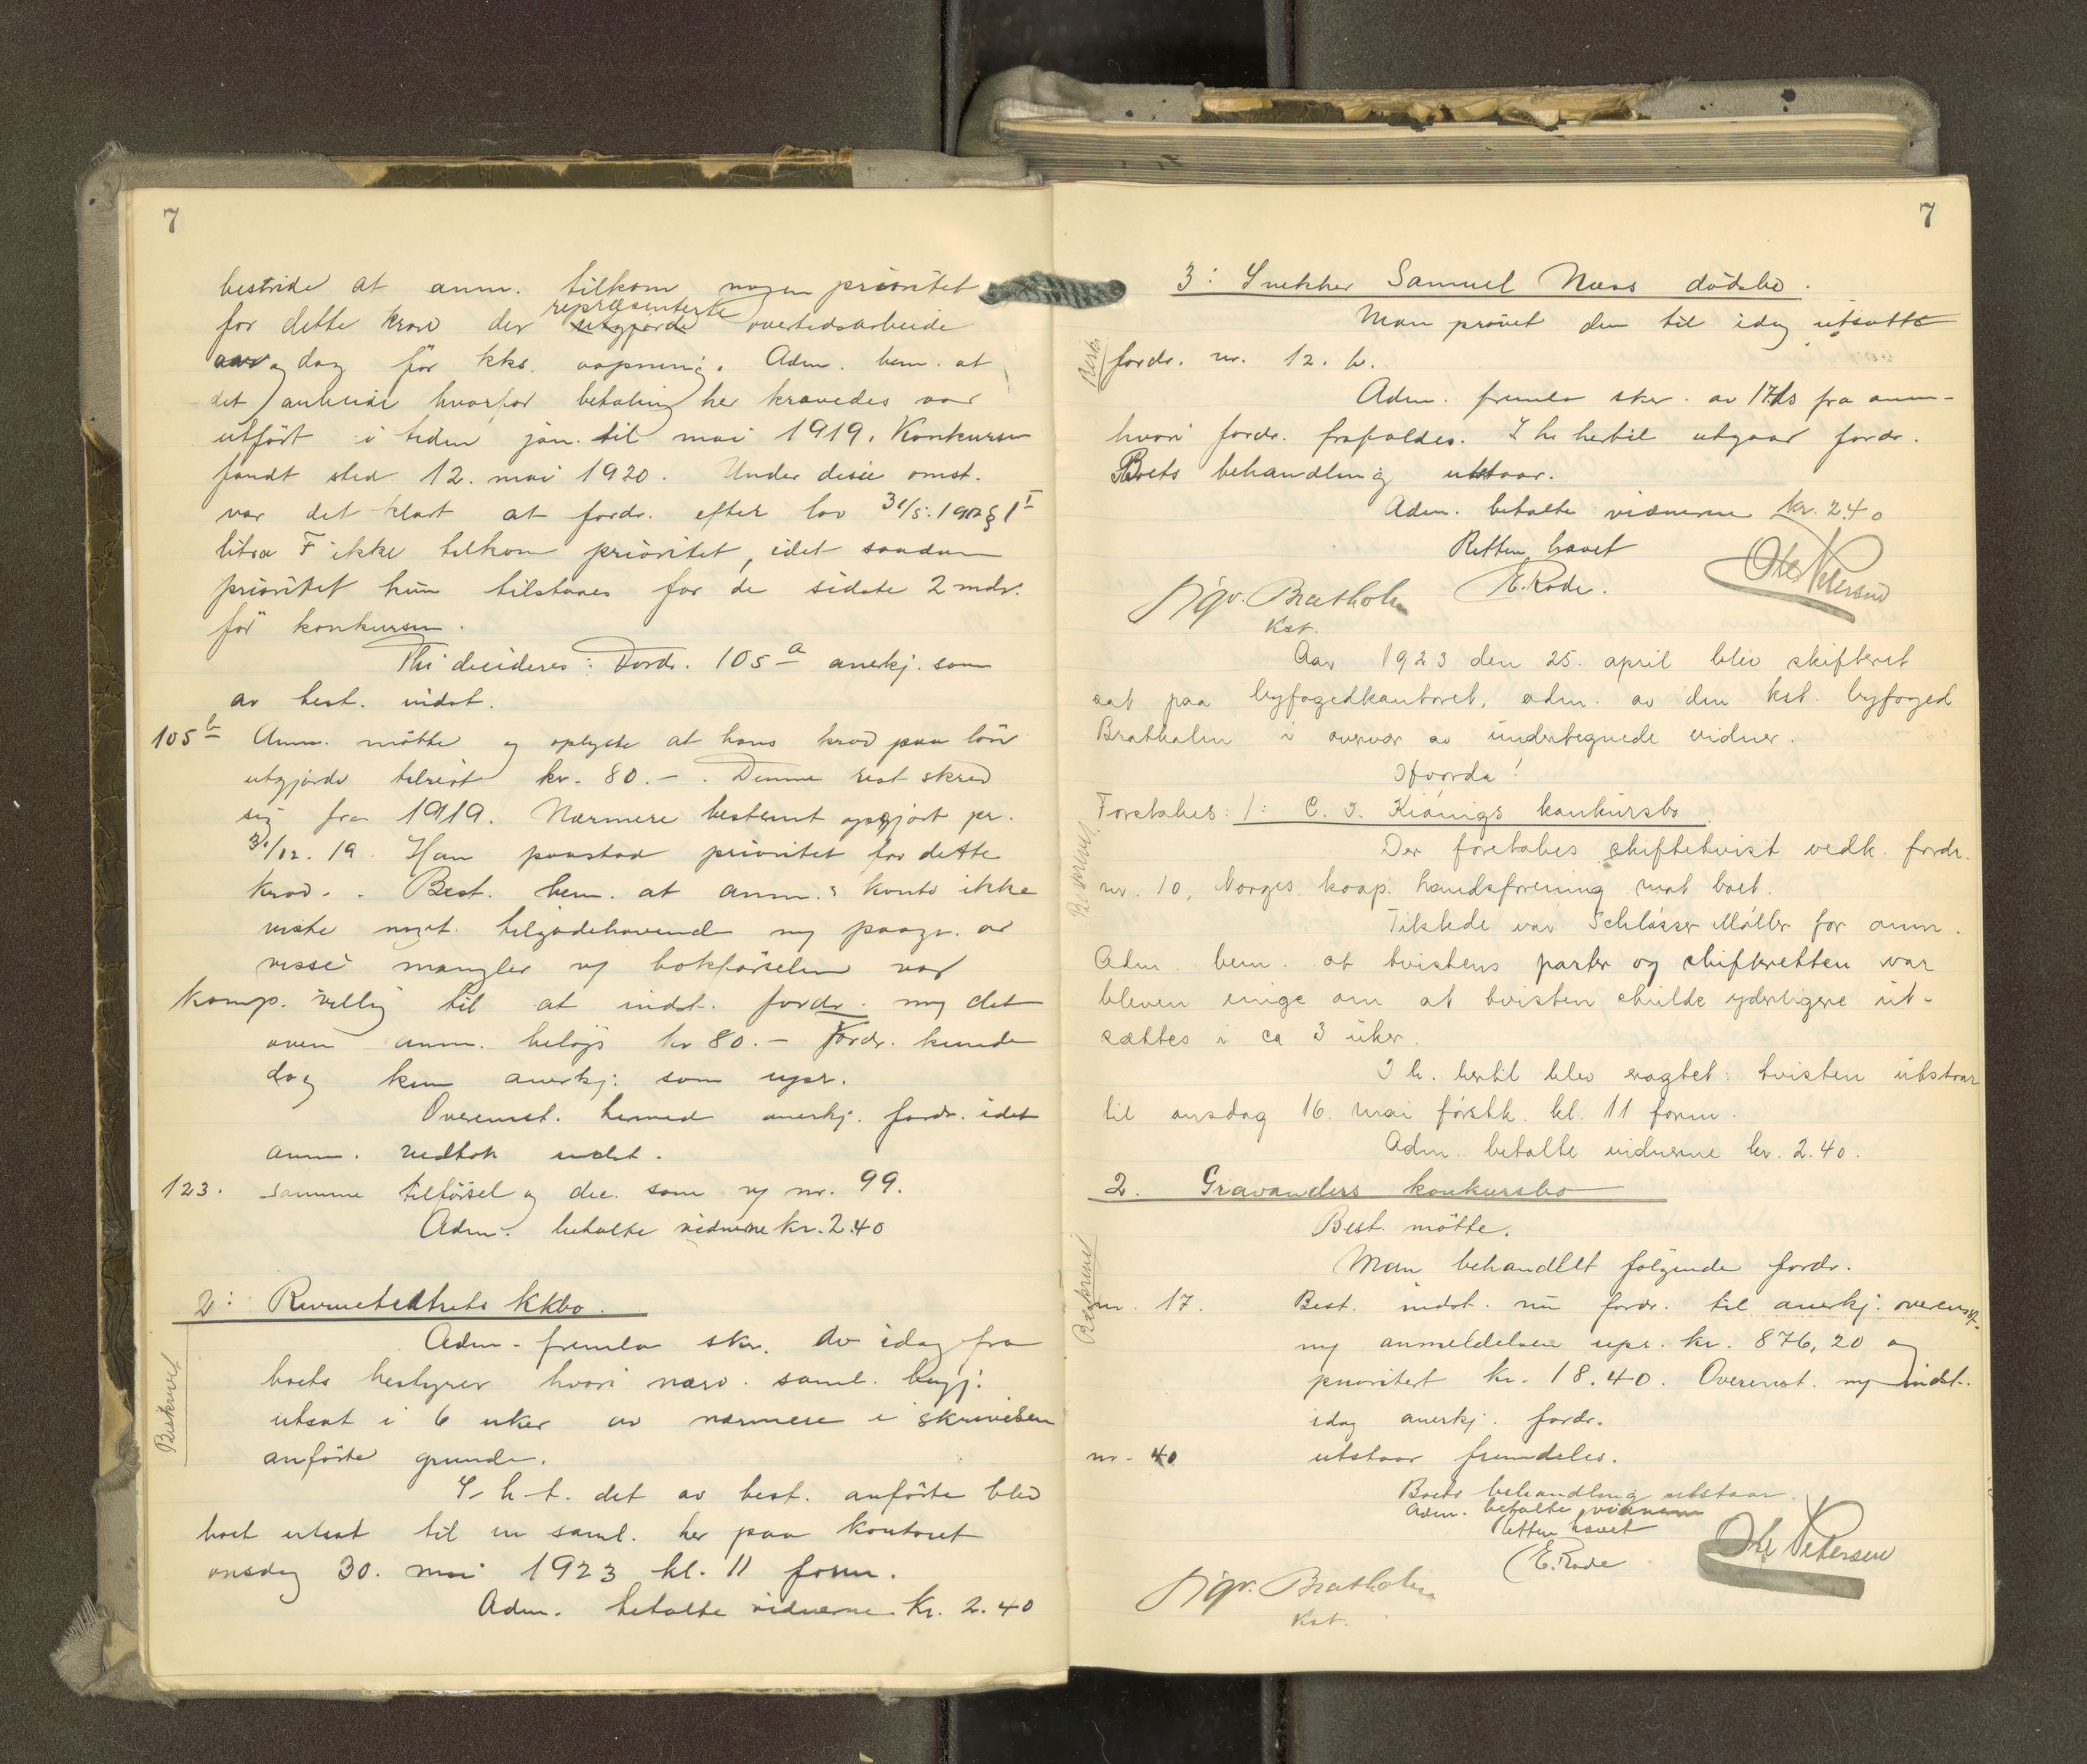 7
bestride at anm. tilkom nogen prioritet
for dette krav der repræsenterte overtidsarbeide
aar og dag før kks. aapning. Adm. bem. at
det arbeide hvorfor betaling her krævedes var
utført i tiden jan. til mai 1919. Konkursen
fandt sted 12. mai 1920. Under disse omst.
var det klart at fordr. efter lov 31/5.1902 § 1
litra F ikke tilkom prioritet, idet saadan
prioritet kun tilstaaes for de sidste 2 mdr.
før konkursen.
Thi decideres: Fordr. 105 a anerkj. som
av best. indst.
105 b Anm. møtte og oplyste at hans krav paa løn
utgjorde tilrest kr. 80.-. Denne rest skrev
sig fra 1919. Nærmere bestemt opgjort pr.
31/12. 19. Han paastod prioritet for dette
krav. Best. bem. at anm.s konto ikke
viste noget tilgodehavende
visse mangler ved bokførselen var
komp. villig til at indst. fordr. med det
oven anm. beløp kr 80.- Fordr. kunde
dog kun anerkj. som upr.
Overenst. hermed anerkj. fordr. idet
anm. vedtok indst.
123. samme tilførsel og dec. som ved nr. 99.
Adm. betalte vidnerne kr. 2.40
2: kkbo.
Beskrevet
Adm. fremla skr. av idag fra
boets bestyrer hvori nærv. saml. begj.
utsat i 6 uker av nærmere i skrivelsen
anførte grunde.
I h t. det av best. anførte blev
boet utsat til en saml. her paa kontoret
onsdag 30. mai 1923 kl. 11 form.
Adm. betalte vidnerne kr. 2.40
7
3: Snekker Samuel Næss dødsbo.
Man prøvet den til idag utsatte
Beskr.
fordr. nr. 12. b.
Adm. fremla skr. av 17 ds fra anm.
hvori fordr. frafaldes. I h. hertil utgaar fordr.
Boets behandling utstaar.
Adm. betalte vidnerne kr. 2.40
Retten hævet
Sigv. Bratholm E. Rode. Ole Petersen
Kst.
Aar 1923 den 25. april blev skifteret
sat paa byfogedkontoret, adm. av den kst. byfoged
Bratholm i overvær av undertegnede vidner.
Hvorda!
Foretokes: 1: C. I. Kiønigs konkursbo.
Der foretokes skiftetvist vedk. fordr.
Beskrevet
nr. 10, Norges koop. handsforening mot boet.
Tilstede var Schlösser Møller for anm.
Adm. bem. at tvistens parter og skifteretten var
bleven enige om at tvisten skulde yderligere ut-
sættes i ca 3 uker.
I h. hertil blev eragtet: tvisten utstaar
til onsdag 16. mai førstk. kl. 11 form.
Adm. betalte vidnerne kr. 2.40.
2. Gravanders konkursbo
Best. møtte.
Man behandlet følgende fordr.
Beskrevet
nr. 17. Best. indst. nu fordr. til anerkj. overenst.
med anmeldelsen upr. kr. 876,20 og
prioritert kr. 18.40. Overenst. med indst.
idag anerkj. fordr.
nr. 40 utstaar fremdeles.
Boets behandling utstaar.
Adm. betalte vidnerne
Retten hævet
E. Rode Ole Petersen
Sigv. Bratholm
Kst.